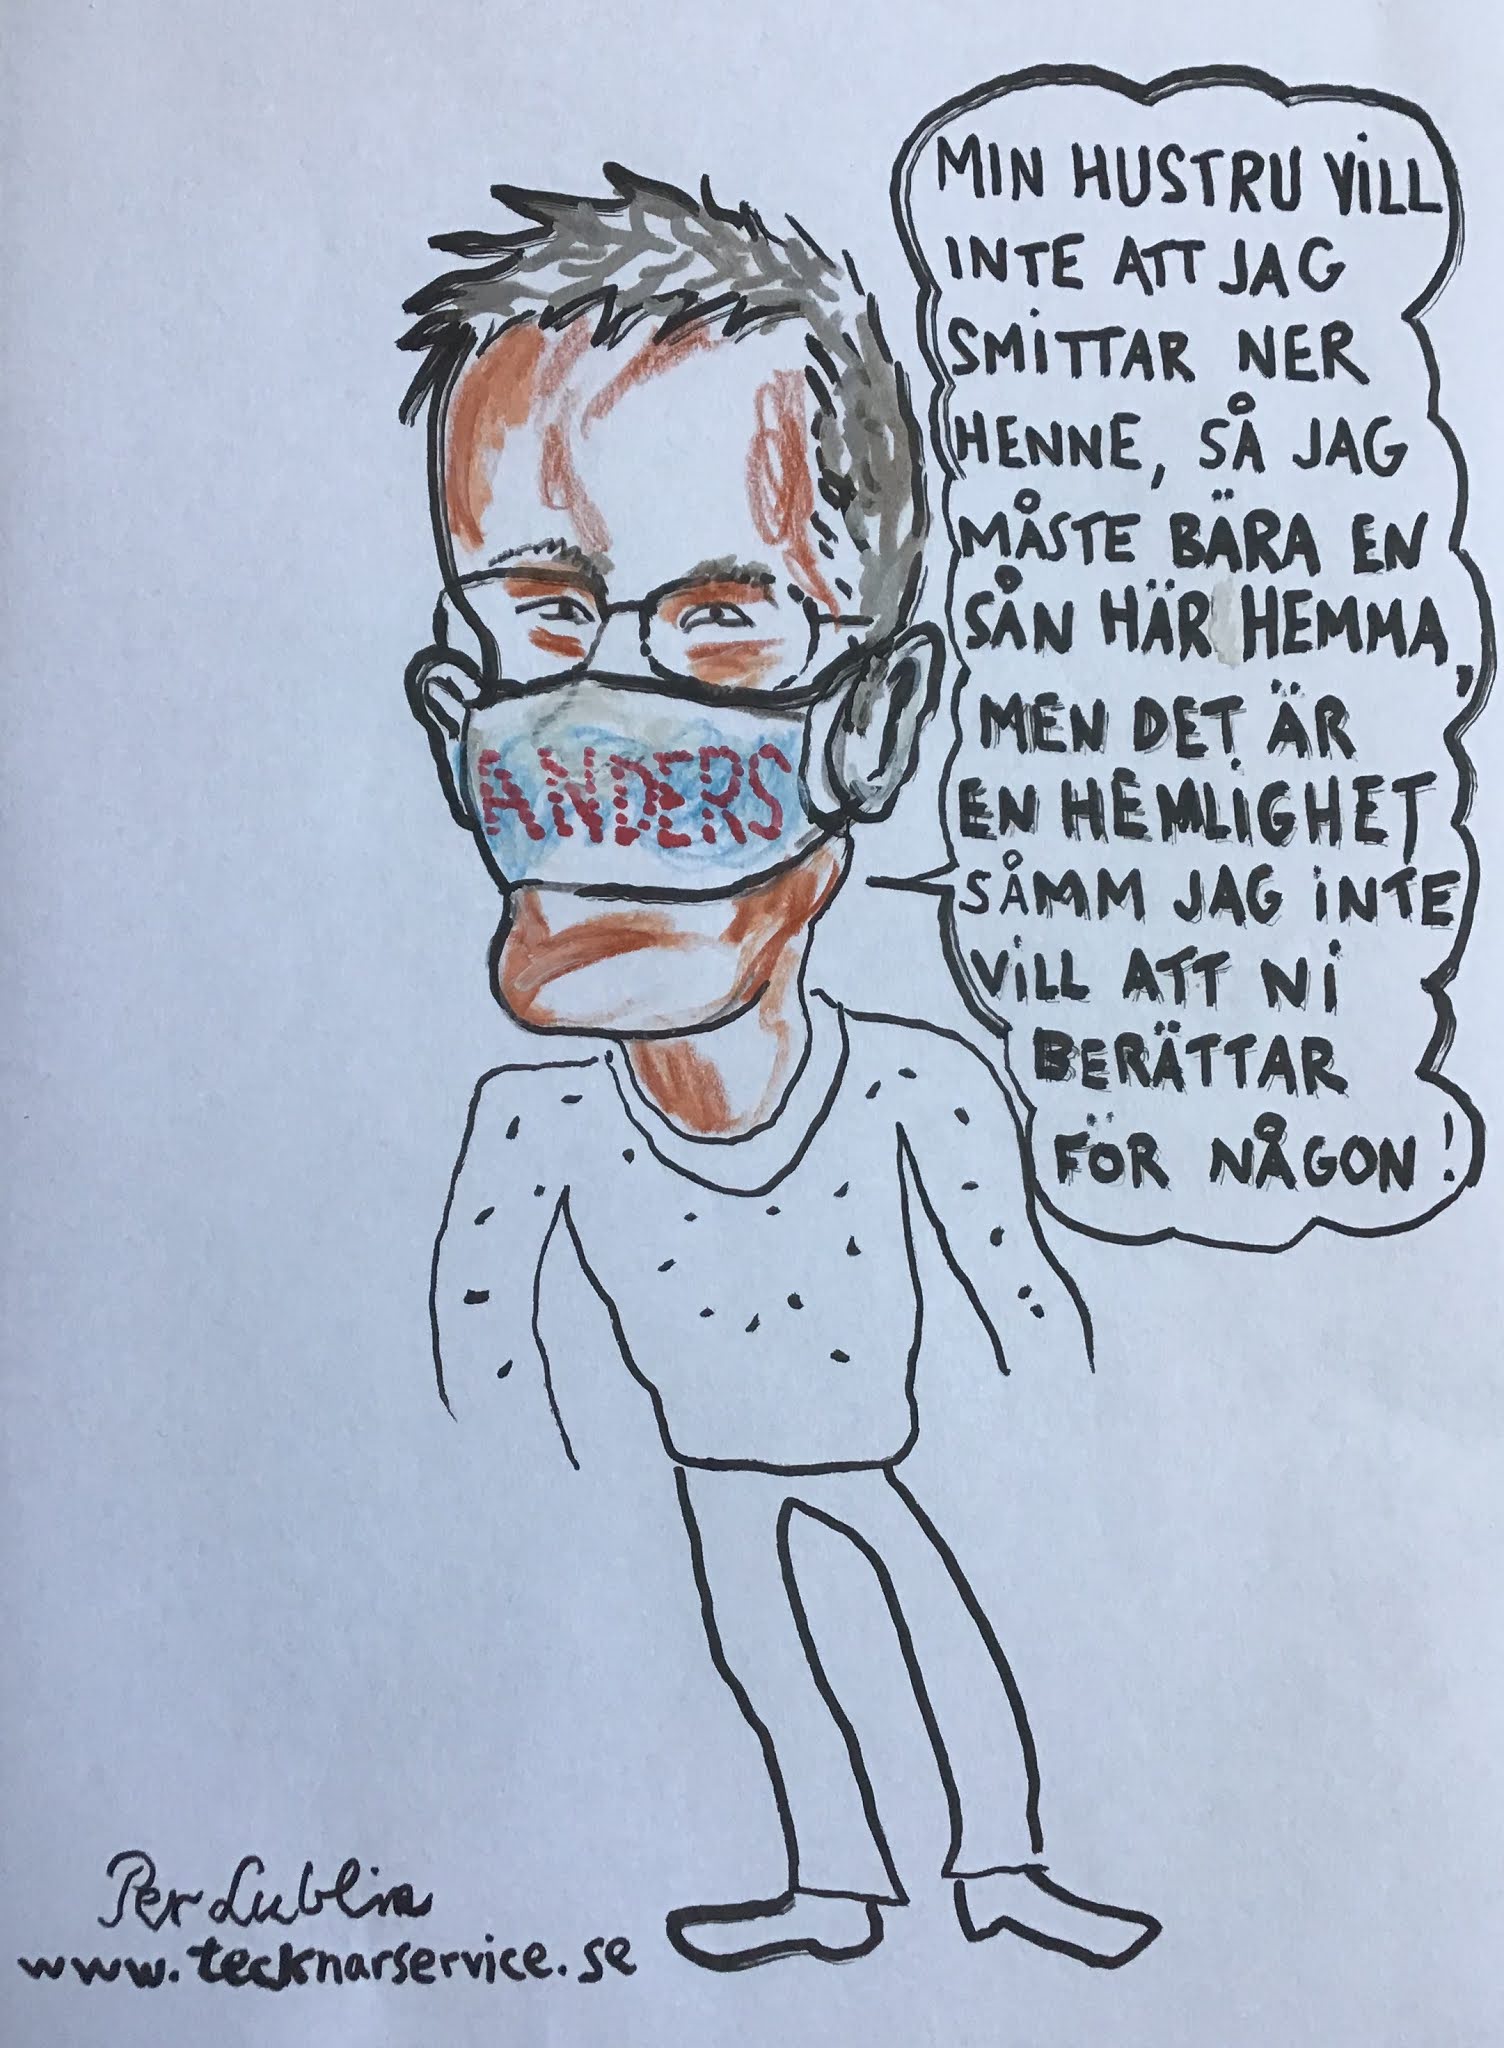 MIN HUSTRU VILL
INTE ATT JAG
SMITTAR NER
HENNE, SÅ JAG
MÅSTE BÄRA EN
SÅN HÄR HEMMA,
MEN DET ÄR
EN HEMLIGHET
SÅMM JAG INTE
VILL ATT NI
BERÄTTAR
FÖR NÅGON!
ANDERS
Per Lublin
www.tecknarservice.se